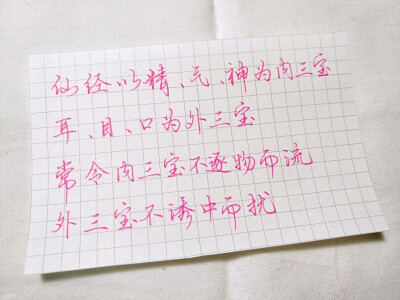 仙经以精、气、神为内三宝
耳、目、口为外三宝
常令内三宝不逐物而流
外三宝不诱中而扰